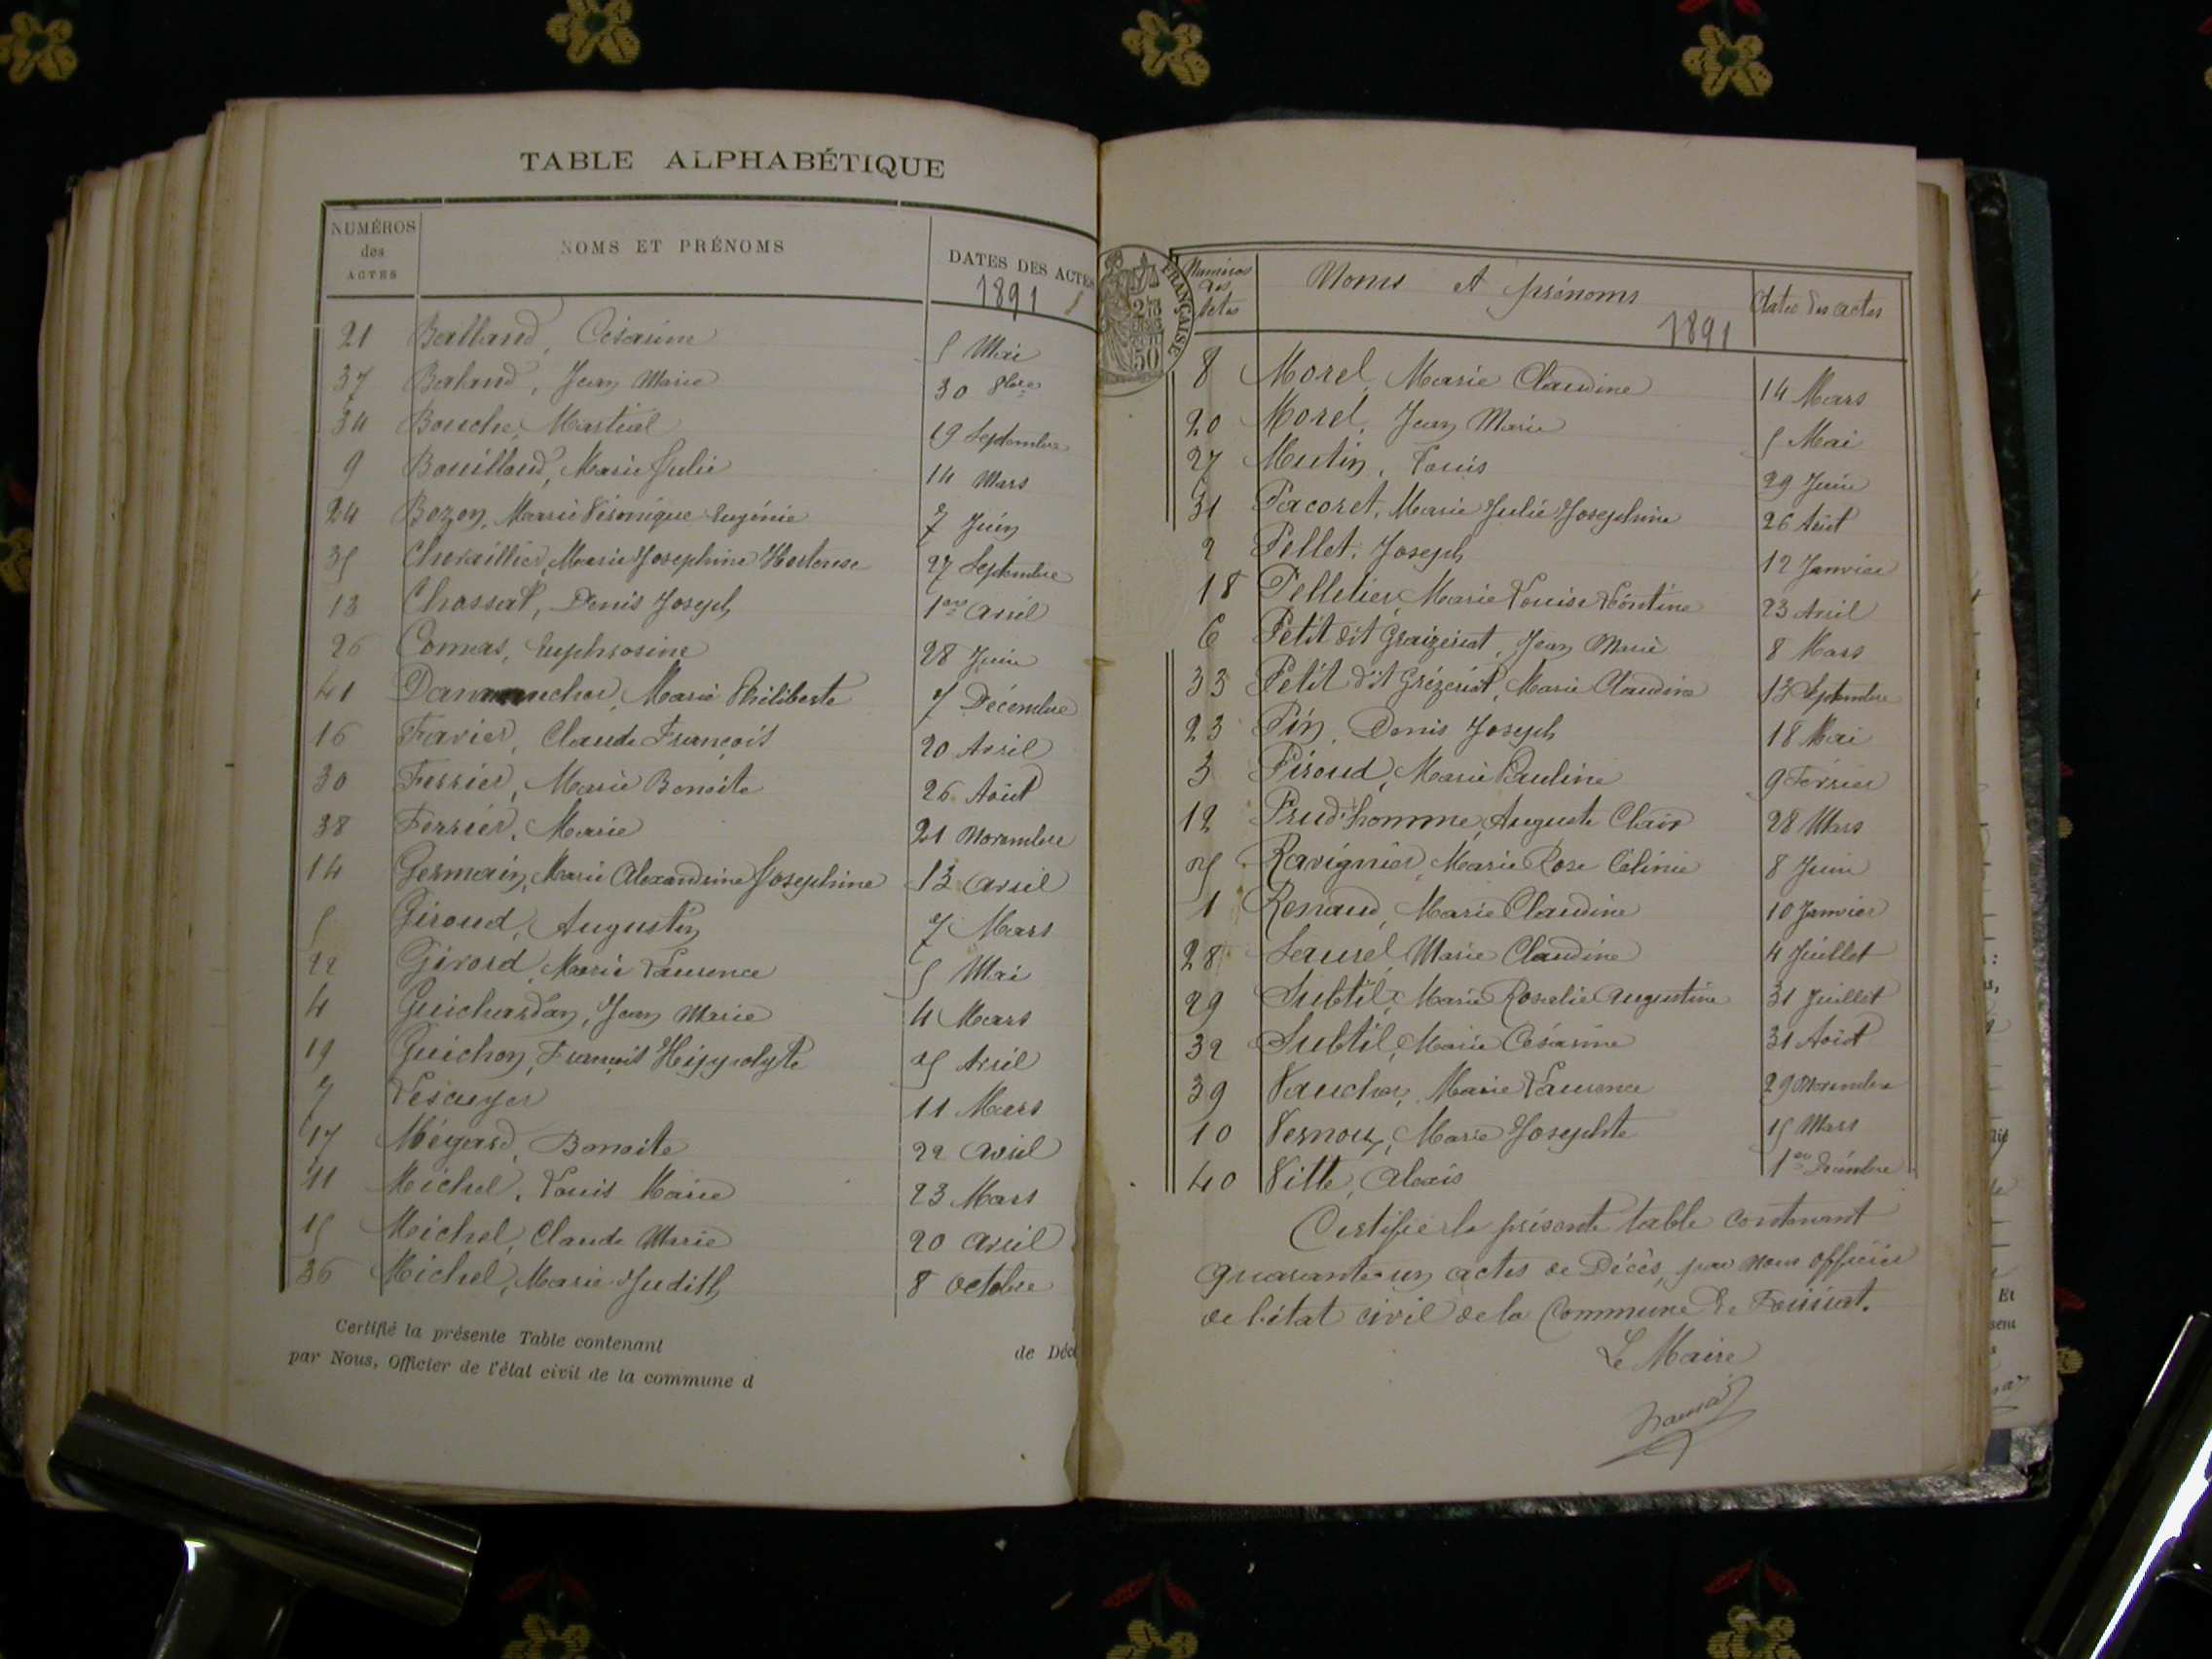 TABLE ALPHABÉTIQUE
NUMÉROS des ACTES NOMS ET PRÉNOMS DATES DES ACTES
1891
21 Balland, Césarine 5 Mai
37 Baland, Jean Marie 30 8bre
34 Bouche, Martial 19 Septembre
9 Bouilloud, Marie Julie 14 Mars
24 Bozon, Marie Véronique Eugénie 7 Juin
35 Chevaillier, Marie Josephine Hortense 27 Septembre
13 Chossat, Denis Joseph 1er avril
26 Comas, Euphrosine 28 Juin
41 Marie Philiberte 7 Décembre
16 Favier, Claude François 20 Avril
30 Ferrier, Marie Benoite 26 Août
38 Ferrier, Marie 21 Novembre
14 Germain, Marie Alexandrine Josephine 13 avril
5 Giroud, Augustin 7 Mars
22 Girord, Marie Laurence 5 Mai
4 Guichardan, Jean Marie 4 Mars
19 Guichon, François Hippolyte 25 Avril
7 11 Mars
17 Mégard, Benoite 22 avril
11 Michel, Louis Marie 23 Mars
15 Michel, Claude Marie 20 avril
36 Michel, Marie Judith 8 octobre
Certifié la présente Table contenant de Déc
par Nous, Officier de l'état civil de la commune d
FRANÇAISE
50
Numéros des Actes Noms et prénoms Dates des actes
1891
8 Morel, Marie Claudine 14 Mars
20 Morel, Jean Marie 5 Mai
27 Mutin, Louis 29 Juin
31 Pacoret, Marie Julie Josephine 26 Août
2 Pellet, Joseph 12 Janvier
18 Pelletier, Marie Louise Léontine 23 Avril
6 Petit dit Graizeriat, Jean Marie 8 Mars
33 Petit dit Grézeriat, Marie Claudine 13 Septembre
23 Pin, Denis Joseph 18 Mai
3 Piroud, Marie Pauline 9 Février
12 Prud'homme, Auguste Clair 28 Mars
25 Ravignier, Marie Rose Célinie 8 Juin
1 Renaud, Marie Claudine 10 Janvier
28 Marie Claudine 4 Juillet
29 Subtil, Marie Rosalie Augustine 31 Juillet
32 Subtil, Marie Césarine 31 Août
39 Vaucher, Marie Laurence 29 Novembre
10 Vernoux, Marie Josephte 15 Mars
40 Vitte, Alexis 1er Décembre
Certifié la présente table contenant
quarante un actes de Décès, par nous officier
de l'état civil de la Commune de Foissiat.
Le Maire